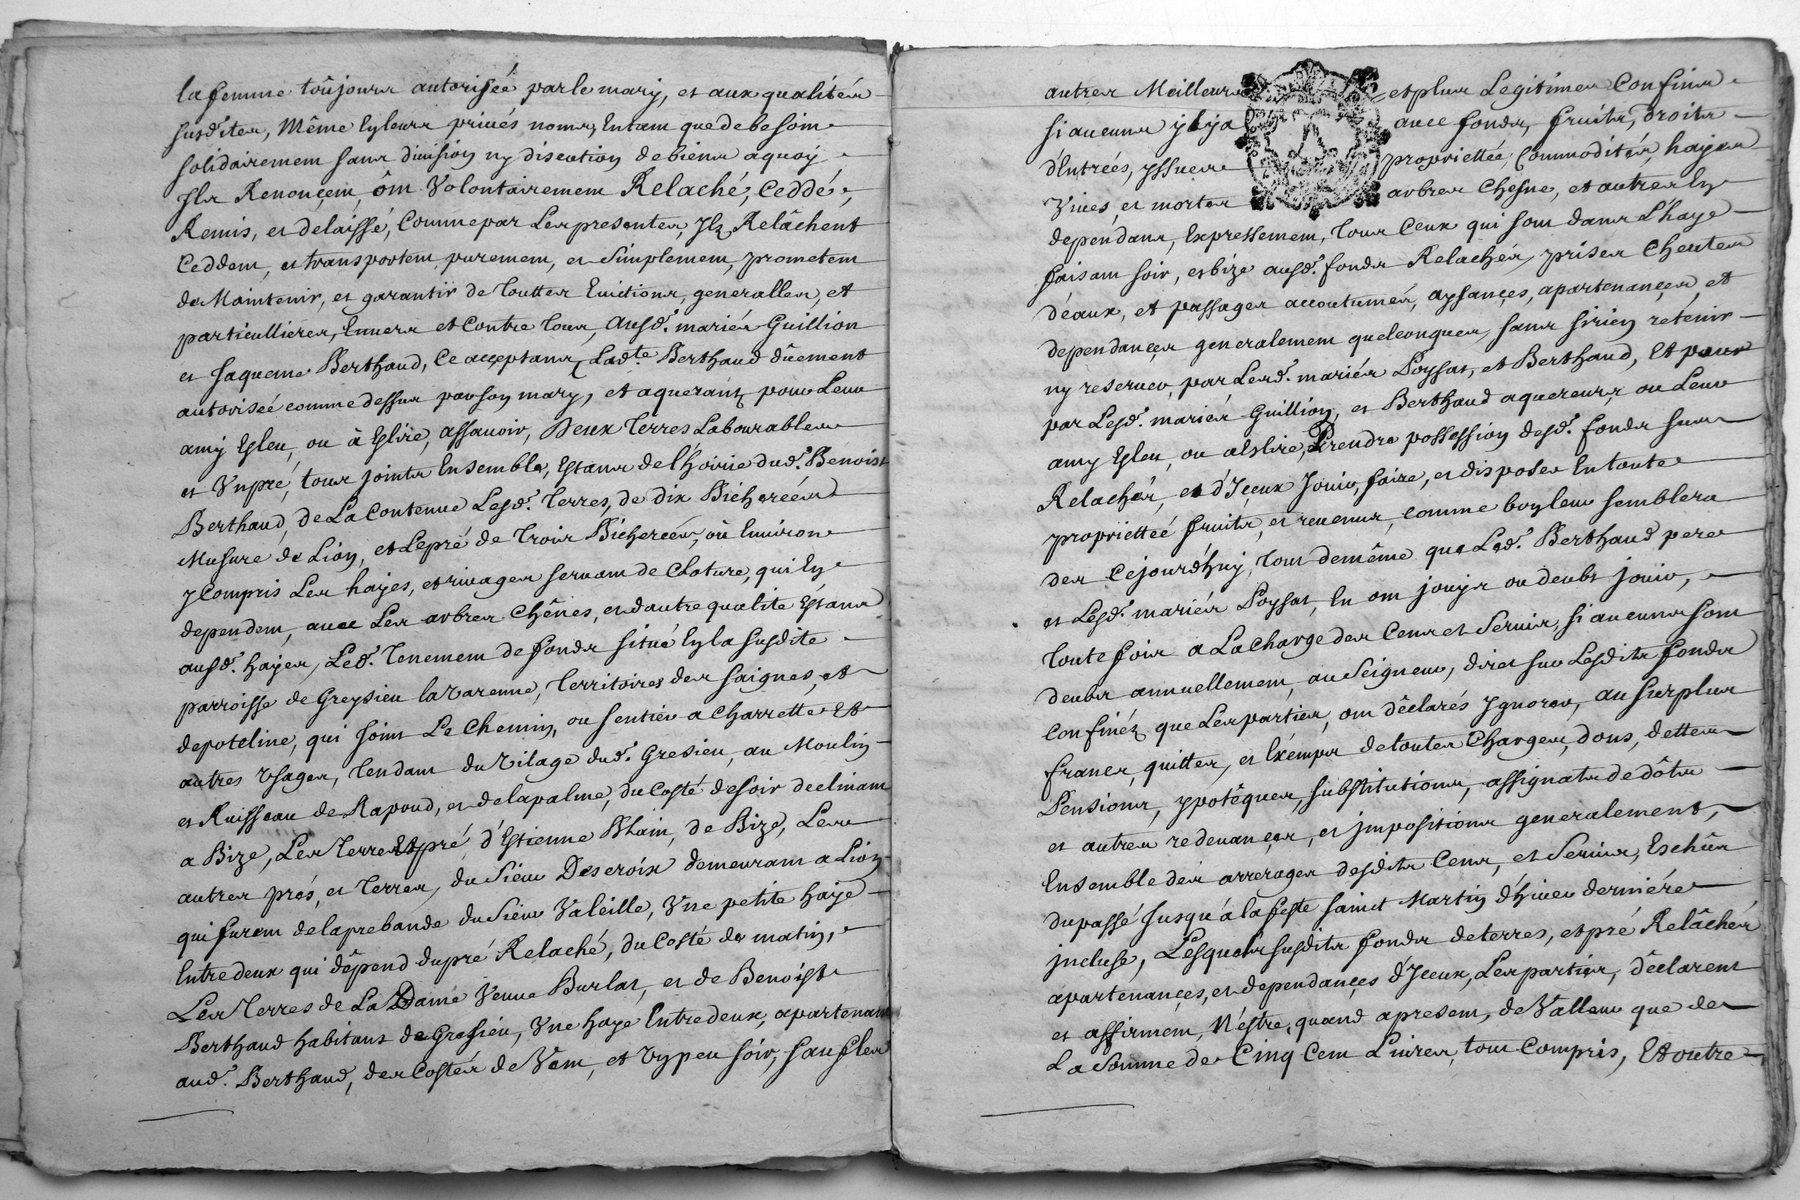 la femme toûjours autorisée par le mary, et aux qualités
susd.ites, même En leurs privés noms, Entant que de besoin
solidairement sans division ny discution de biens aquoy
Jls Renonçent, ont Volontairement Relaché, Ceddé,
Remis, et delaissé, Comme par Les presentes, Jlz Relâchent
Ceddent, et transportent, purement, et Simplement, prometent
de Maintenir, et garantir de touttes Evictions, generalles, et
particullieres, Envers et Contre tous, ausd. mariés Guillion
et Jaqueme Berthaud, Ce acceptans, Lad.te Berthaud dûement
autorisée comme dessus par son mary, et aquerantz pour Leur
amy Esleu, ou à Eslire, assavoir, Deux terres Labourables
et Vn pré, tous joints Ensemble, Estans de l'hoirie dud. Benoist
Berthaud, de La Contenue Lesd. Terres, de dix Bicherées
Mesure de Lion, et Le pré de trois Bicherées, où Environ
y Compris Les hayes, et rivages servant de Cloture, qui En
dependent, avec Les arbres Chênes, et d'autre qualite Estans
ausd. hayes, Led. tenement de fonds situé En la Susdite
parroisse de Greysieu la Varenne, territoires des Saignes, et
de poteline, qui Joint Le Chemin, ou sentier a Charrette et
autres Vsages, tendant du Vilage dud. Gresieu, au Moulin
et Ruisseau de Rapoud, et de la palme, du Costé de soir declinant
a Bize, Les Terres et pré d'Estienne Blain, de Bize, Les
autres prés, et terres, du Sieur Descroix demeurant a Lion
qui furent de la prebande du Sieur Valeille, Vne petite haye
Entre deux qui dêpend du pré Relaché, du Costé de matin,
Les Terres de La Dame Veuve Burlat, et de Benoist
Berthaud habitant de Gresieu, Vne haye Entre deux, apartenant
aud. Berthaud, des Costés de Vent, et Vn peu soir, sauf les
autres Meilleurs et plus Legitimes Confins
si aucuns y en a avec fonds, fruits, droits
d'Entrées, yssues propriettée, Commodités, hayes
Vives et mortes arbres Chesne, et autres En
dependans, Expressement, tous Ceux qui sont dans L'haye
faisant soir, et bize ausd. fonds Relachés, prises Cheutes
d'eaux, et passages accoutumés, aysançes, apartenançes, et
dependançes generalement quelconques, sans si rien rétenir
ny reserver, par Lesd. mariés Poysat, et Berthaud, Et pour
par Lesd. mariés Guillion, et Berthaud aquereurs, ou Leur
amy Esleu, ou a Eslire, Prendre possession desd. fonds sus
Relachés, et d'Jceux Jouir, faire, et disposer En toute
propriettée fruits, et revenus, comme bon leur semblera
des Cejourdhuy, tout de même que Led. Berthaud pere
et Lesd. mariés Poysat, En ont jouyr ou deubt jouir,
toute fois a La Charge des Cens et Servis, si aucuns sont
deubs annuellement, au Seigneur, direct sur Lesdits fonds
Confinéz, que Les parties, ont dêclarés Ygnorer, au surplus
francs, quittes, et Exémps de toutes Charges, dons, dettes
Pensions, ypotêques, substitutions, assignats de dôts
et autres redevançes, et jmpositions generalement,
Ensemble des arrerages desdits Cens, et Servis, Eschûs
du passé Jusqu'à la feste sainct Martin d'hiver derniére
jncluse, Lesquels susdits fonds de terres, et pré Relâchés
apartenançes, et dependançes d'Jceux, Les parties, dêclarent
et affirment, N'estre, quand apresent, de Valleur que de
La Somme de Cinq Cent Livres, tout Compris, Et outre